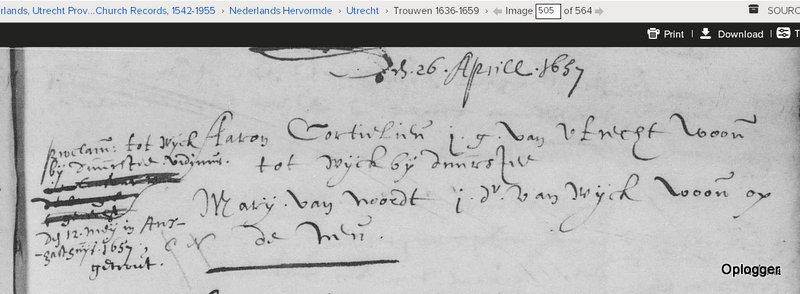 rlands, Utrecht Prov...Church Records, 1542-1955 › Nederlands Hervormde › Utrecht › Trouwen 1636-1659 › Image 505 of 564 SOURC
Print | Download | T
26 Aprill. 1657
proclam: tot wyck
Aaron Cortelieu j. g. van Utrecht woon
by duurstede
tot wyck by duurstede
Mary van Noordt j. dr. van wyck woon op
de Neu.
den 12. mey in
1657,
getrout.
Oplogger